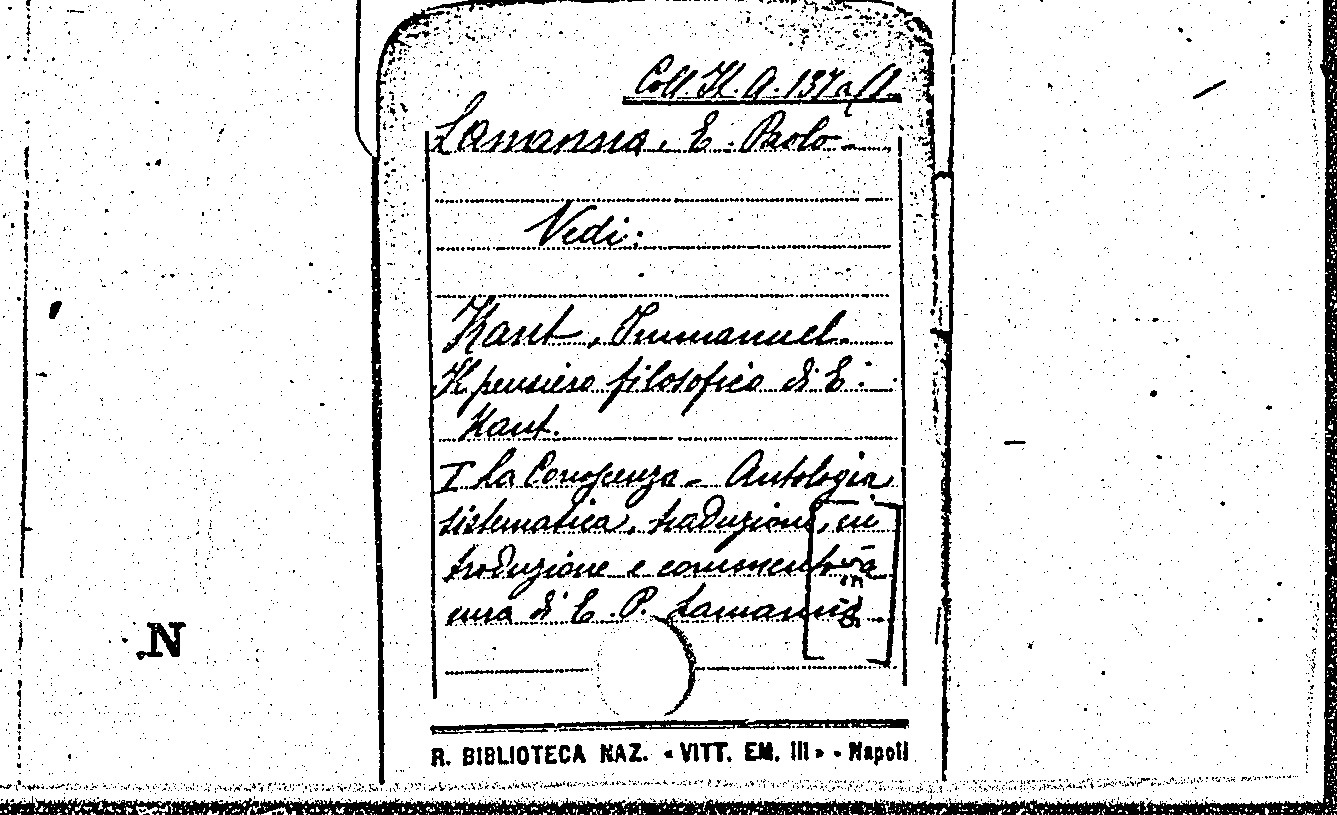 Coll. It. A. 137a/1.
Lamanna, E. Paolo
Vedi:
Kant, Immanuel.
Il pensiero filosofico di E.
Kant.
I La Conoscenza - Antologia
sistematica, traduzione, in
troduzione e commento a
cura di E. P. Lamanna
N
R. BIBLIOTECA NAZ. « VITT. EM. III » - Napoli